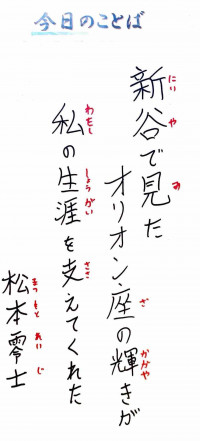 今日のことば
新谷で見た
オリオン座の輝きが
私の生涯を支えてくれた
松本零士
にいや
み
ざ
かがや
わたし
しょうがい
ささ
まつもと
れいじ